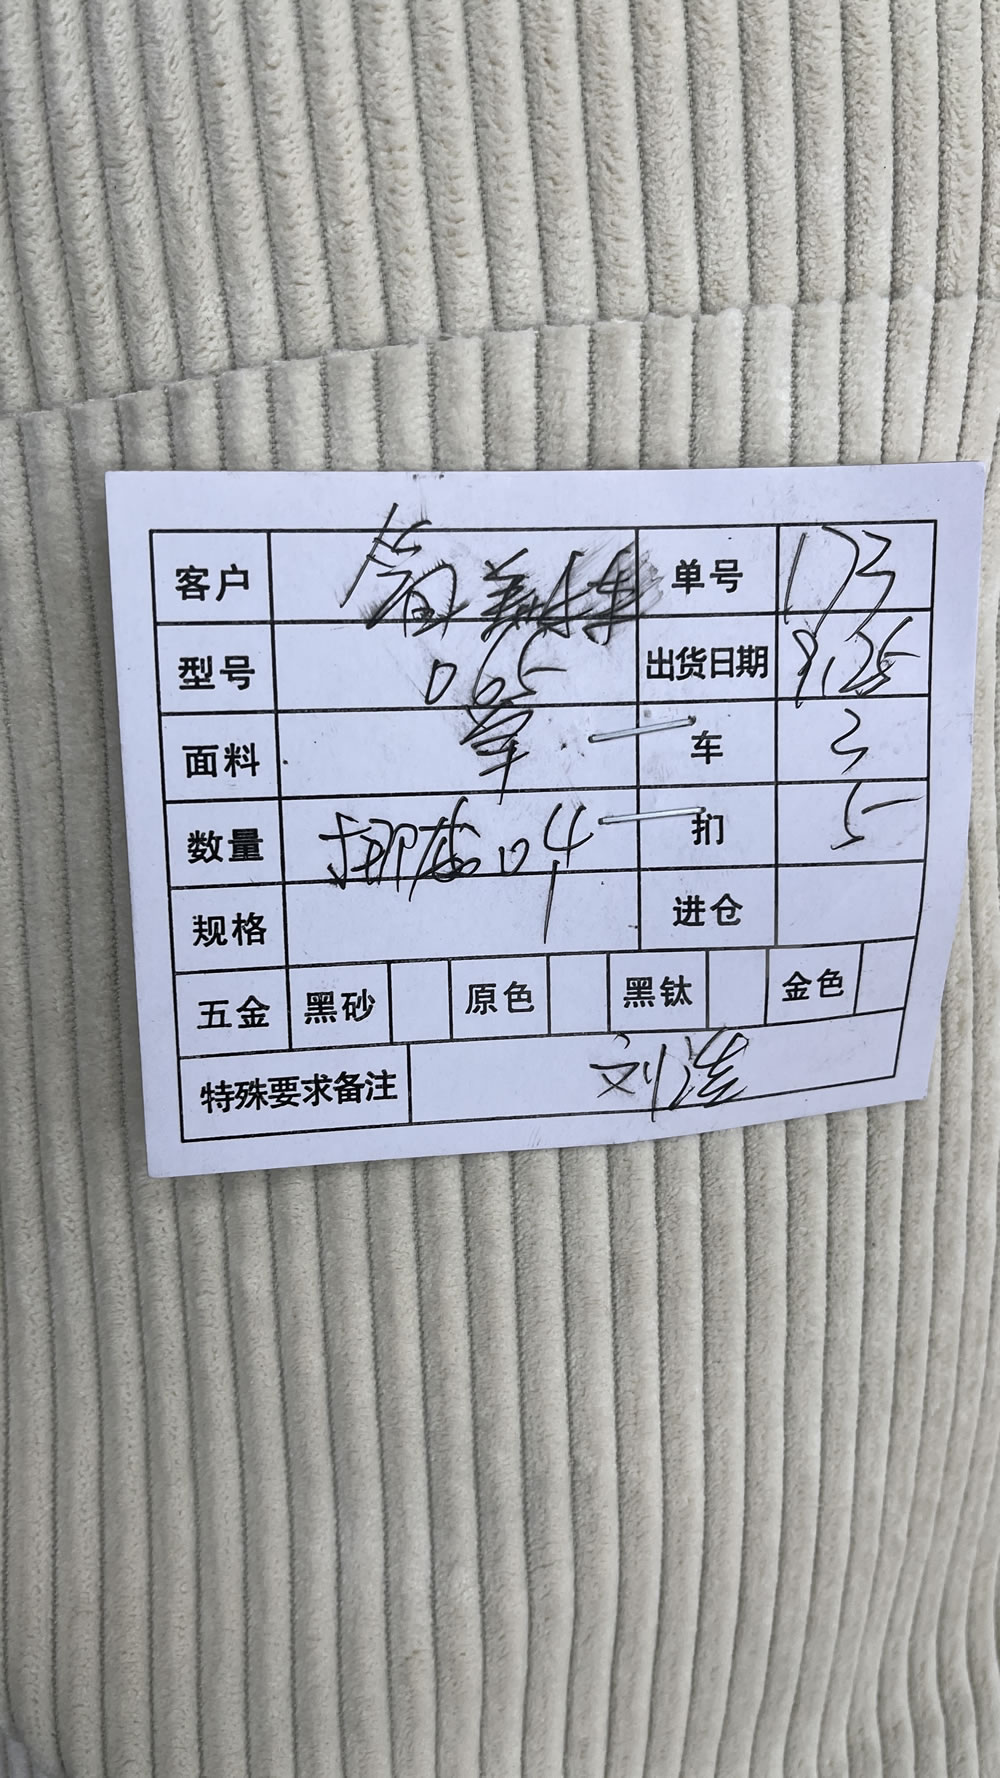 客户 单号 173
型号 065 出货日期 9.25
面料 单 车 3
数量 挪威04 扪 5
规格 进仓
五金 黑砂 原色 黑钛 金色
特殊要求备注 刘浩